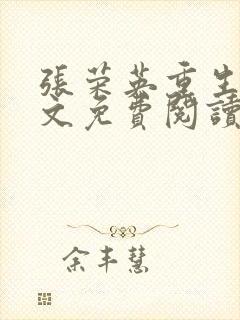 張荣英重生
文免費閱讀
余丰慧